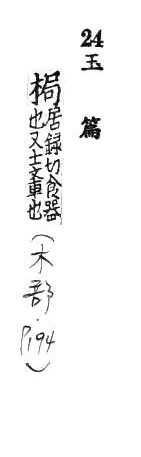 24玉篇
梮居録切食器
也又士轝也
(木部.P194)